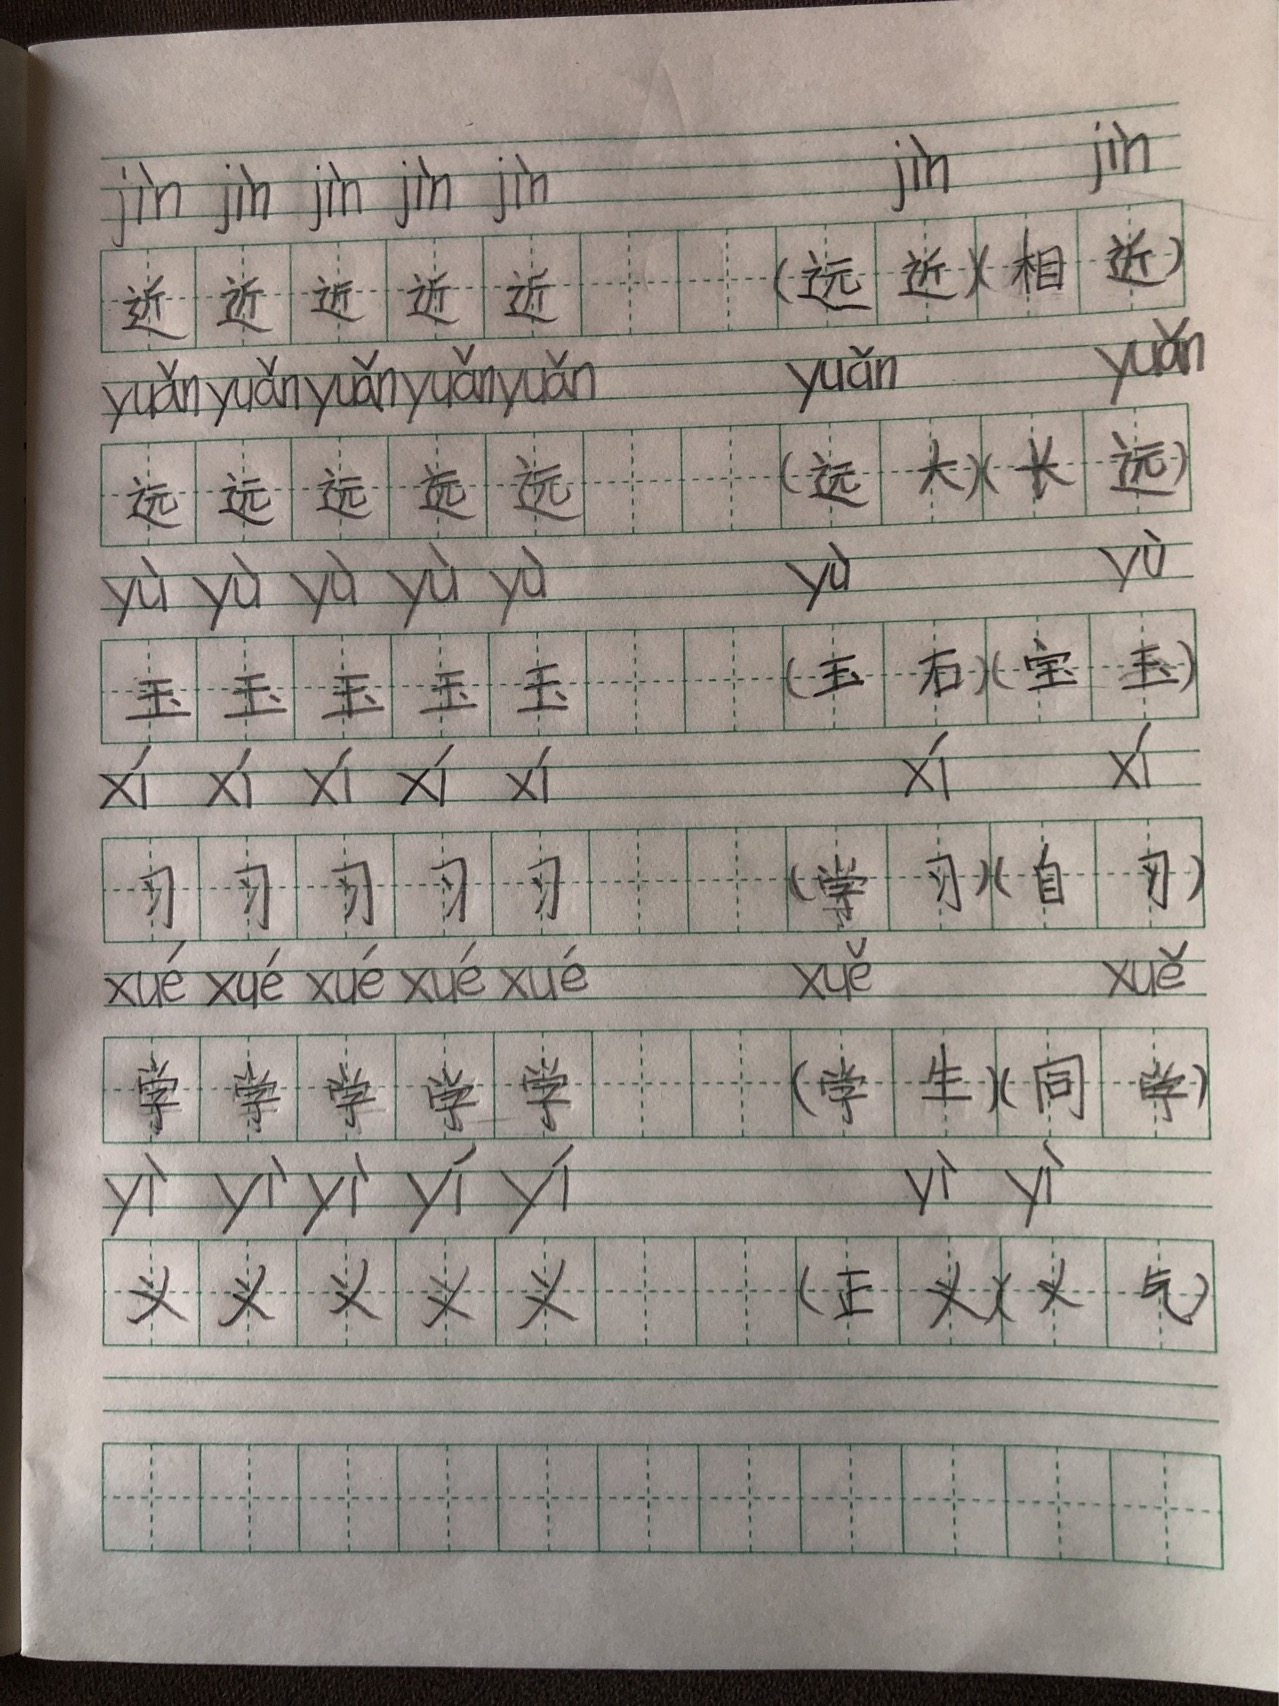 jìn jìn jìn jìn jìn jìn jìn
近 近 近 近 近 (远 近)(相 近)
yuǎn yuǎn yuǎn yuǎn yuǎn yuǎn yuǎn
远 远 远 远 远 (远 大)(长 远)
yù yù yù yù yù yù yù
玉 玉 玉 玉 玉 (玉 石)(宝 玉)
xí xí xí xí xí xí xí
习 习 习 习 习 (学 习)(自 习)
xué xué xué xué xué xuě xuě
学 学 学 学 学 (学 生)(同 学)
yì yì yì yí yí yì yì
义 义 义 义 义 (正 义)(义 气)